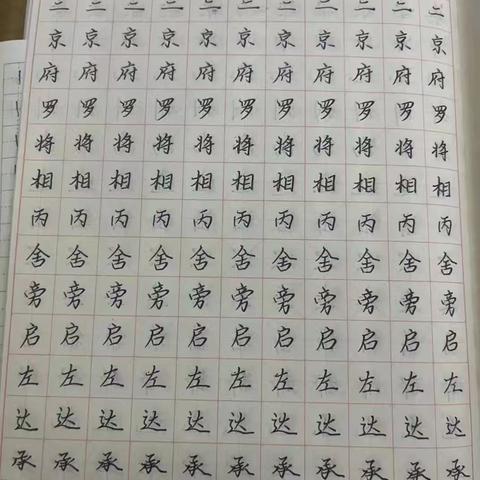 二二二二二二二二二二二
京京京京京京京京京京京
府府府府府府府府府府府
罗罗罗罗罗罗罗罗罗罗罗
将将将将将将将将将将将
相相相相相相相相相相相
丙丙丙丙丙丙丙丙丙丙丙
舍舍舍舍舍舍舍舍舍舍舍
旁旁旁旁旁旁旁旁旁旁旁
启启启启启启启启启启启
左左左左左左左左左左左
达达达达达达达达达达达
承承承承承承承承承承承